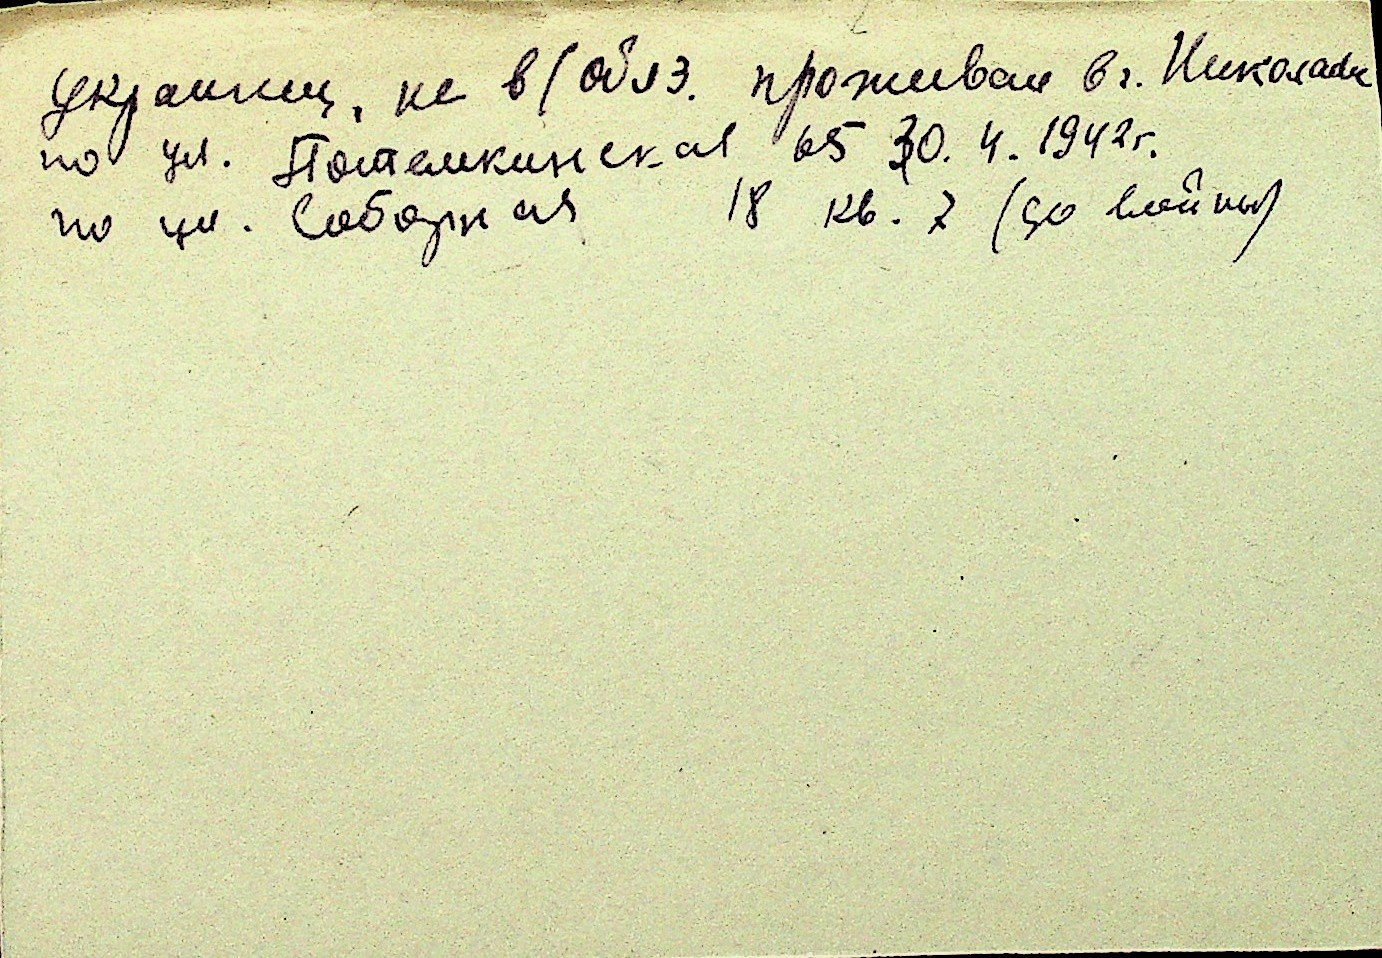 украинец, не в/обяз. проживал в г. Николаеве
по ул. Потемкинская 65 30. 4. 1942 г.
по ул. Соборная 18 кв. 2 (до войны)